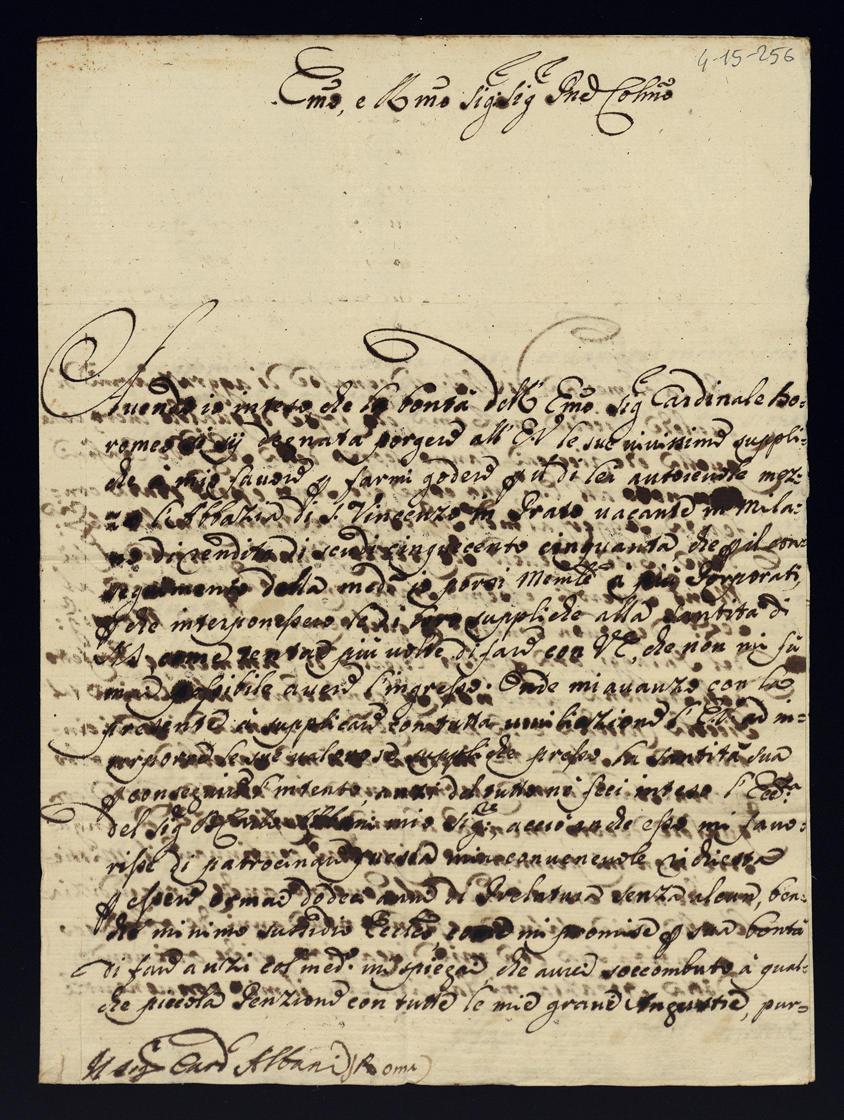 4-15-256
Emo, e Rmo Sig: Sig Pne Colmo
Avendo io inteso, che la bontà dell' Emo Sig Cardinale Bo=
romeo si sij degnata porgere all' E.V le sue umilime suppli=
che à mio favore p farmi godere p il di lei autorevole mez=
zo l'Abbazia di S. Vincenzo in Prato vacante in Mila=
no di rendita di scudi cinquecento cinquanta, che p il con=
seguimento della med.a porsi à più Porporati,
p che interponessero le di loro suppliche alla Santità di
N.S, come tentai più volte di fare con V.E, che non mi fù
mai possibile avere l'ingresso. Onde mi avanzo con la
presente à supplicare con tutta umiliazione l'E.V. ad in=
terporre le sue valorose suppliche presso la Santità sua
p conseguire l'intento, anzi del tutto ne feci inteso l'
del Sig Carlo Albani mio Sig.re, acciò anche esso mi favo=
risse di patrocinare questa mia convenevole richiesta
p essere ormai dodeci anni di Prelatura senza alcun, ben=
che minimo sussidio Eccleo, come mi promise p sua bontà
di fare anzi col med.o mi spiegai che avrei soccombuto à qual=
che piccola Penzione con tutte le mie grandi Angustie, pur=
Sig Card Albani (Roma)